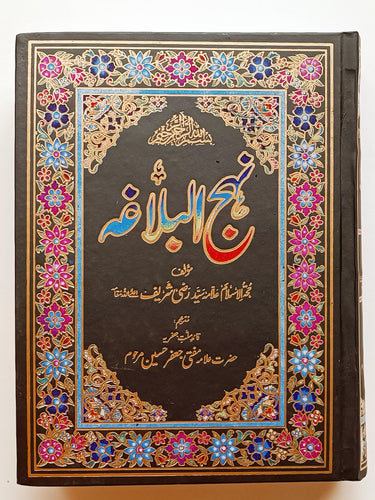 بسم الله الرحمن الرحيم
نهج البلاغه
مؤلف
حجۃ الاسلام علامہ سید رضی شریف
مترجم
قائد ملت جعفریہ
حضرت علامہ مفتی جعفر حسین مرحوم